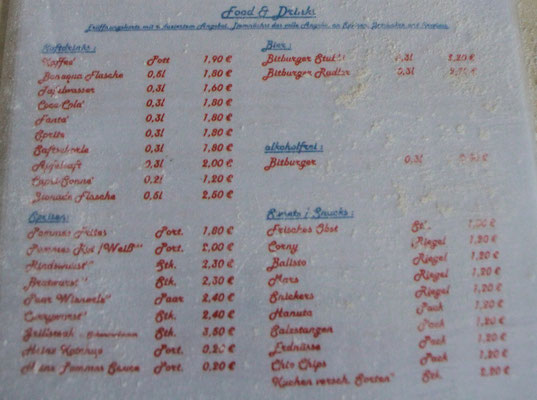 Food & Drinks
Softdrinks:
Kaffee Pott 1,90 €
Bonaqua Flasche 0,5l 1,80 €
Tafelwasser 0,3l 1,60 €
Coca Cola 0,3l 1,80 €
Fanta 0,3l 1,80 €
Sprite 0,3l 1,80 €
Saftschorle 0,3l 1,80 €
Apfelsaft 0,3l 2,00 €
Capri-Sonne 0,2l 1,20 €
Flasche 0,5l 2,50 €
Bier:
Bitburger Stubbi 0,3l
Bitburger Radler 0,3l
alkoholfrei:
Bitburger 0,3l
Speisen:
Pommes Frites Port. 1,80 €
Pommes Rot/Weiß Port. 2,00 €
Rindswurst Stk. 2,30 €
Bratwurst Stk. 2,30 €
Paar Wienerle Paar 2,40 €
Currywurst Stk. 2,40 €
Grillsteak Stk. 3,50 €
Heinz Ketchup Port. 0,20 €
Heinz Pommes Sauce Port. 0,20 €
Snacks:
Frisches Obst St.
Corny Riegel 1,20 €
Balisto Riegel 1,20 €
Mars Riegel 1,20 €
Snickers Riegel 1,20 €
Hanuta Pack 1,20 €
Salzstangen Pack 1,20 €
Erdnüsse Pack 1,20 €
Chio Chips Pack 1,20 €
Kuchen versch. Sorten Stk. 2,20 €